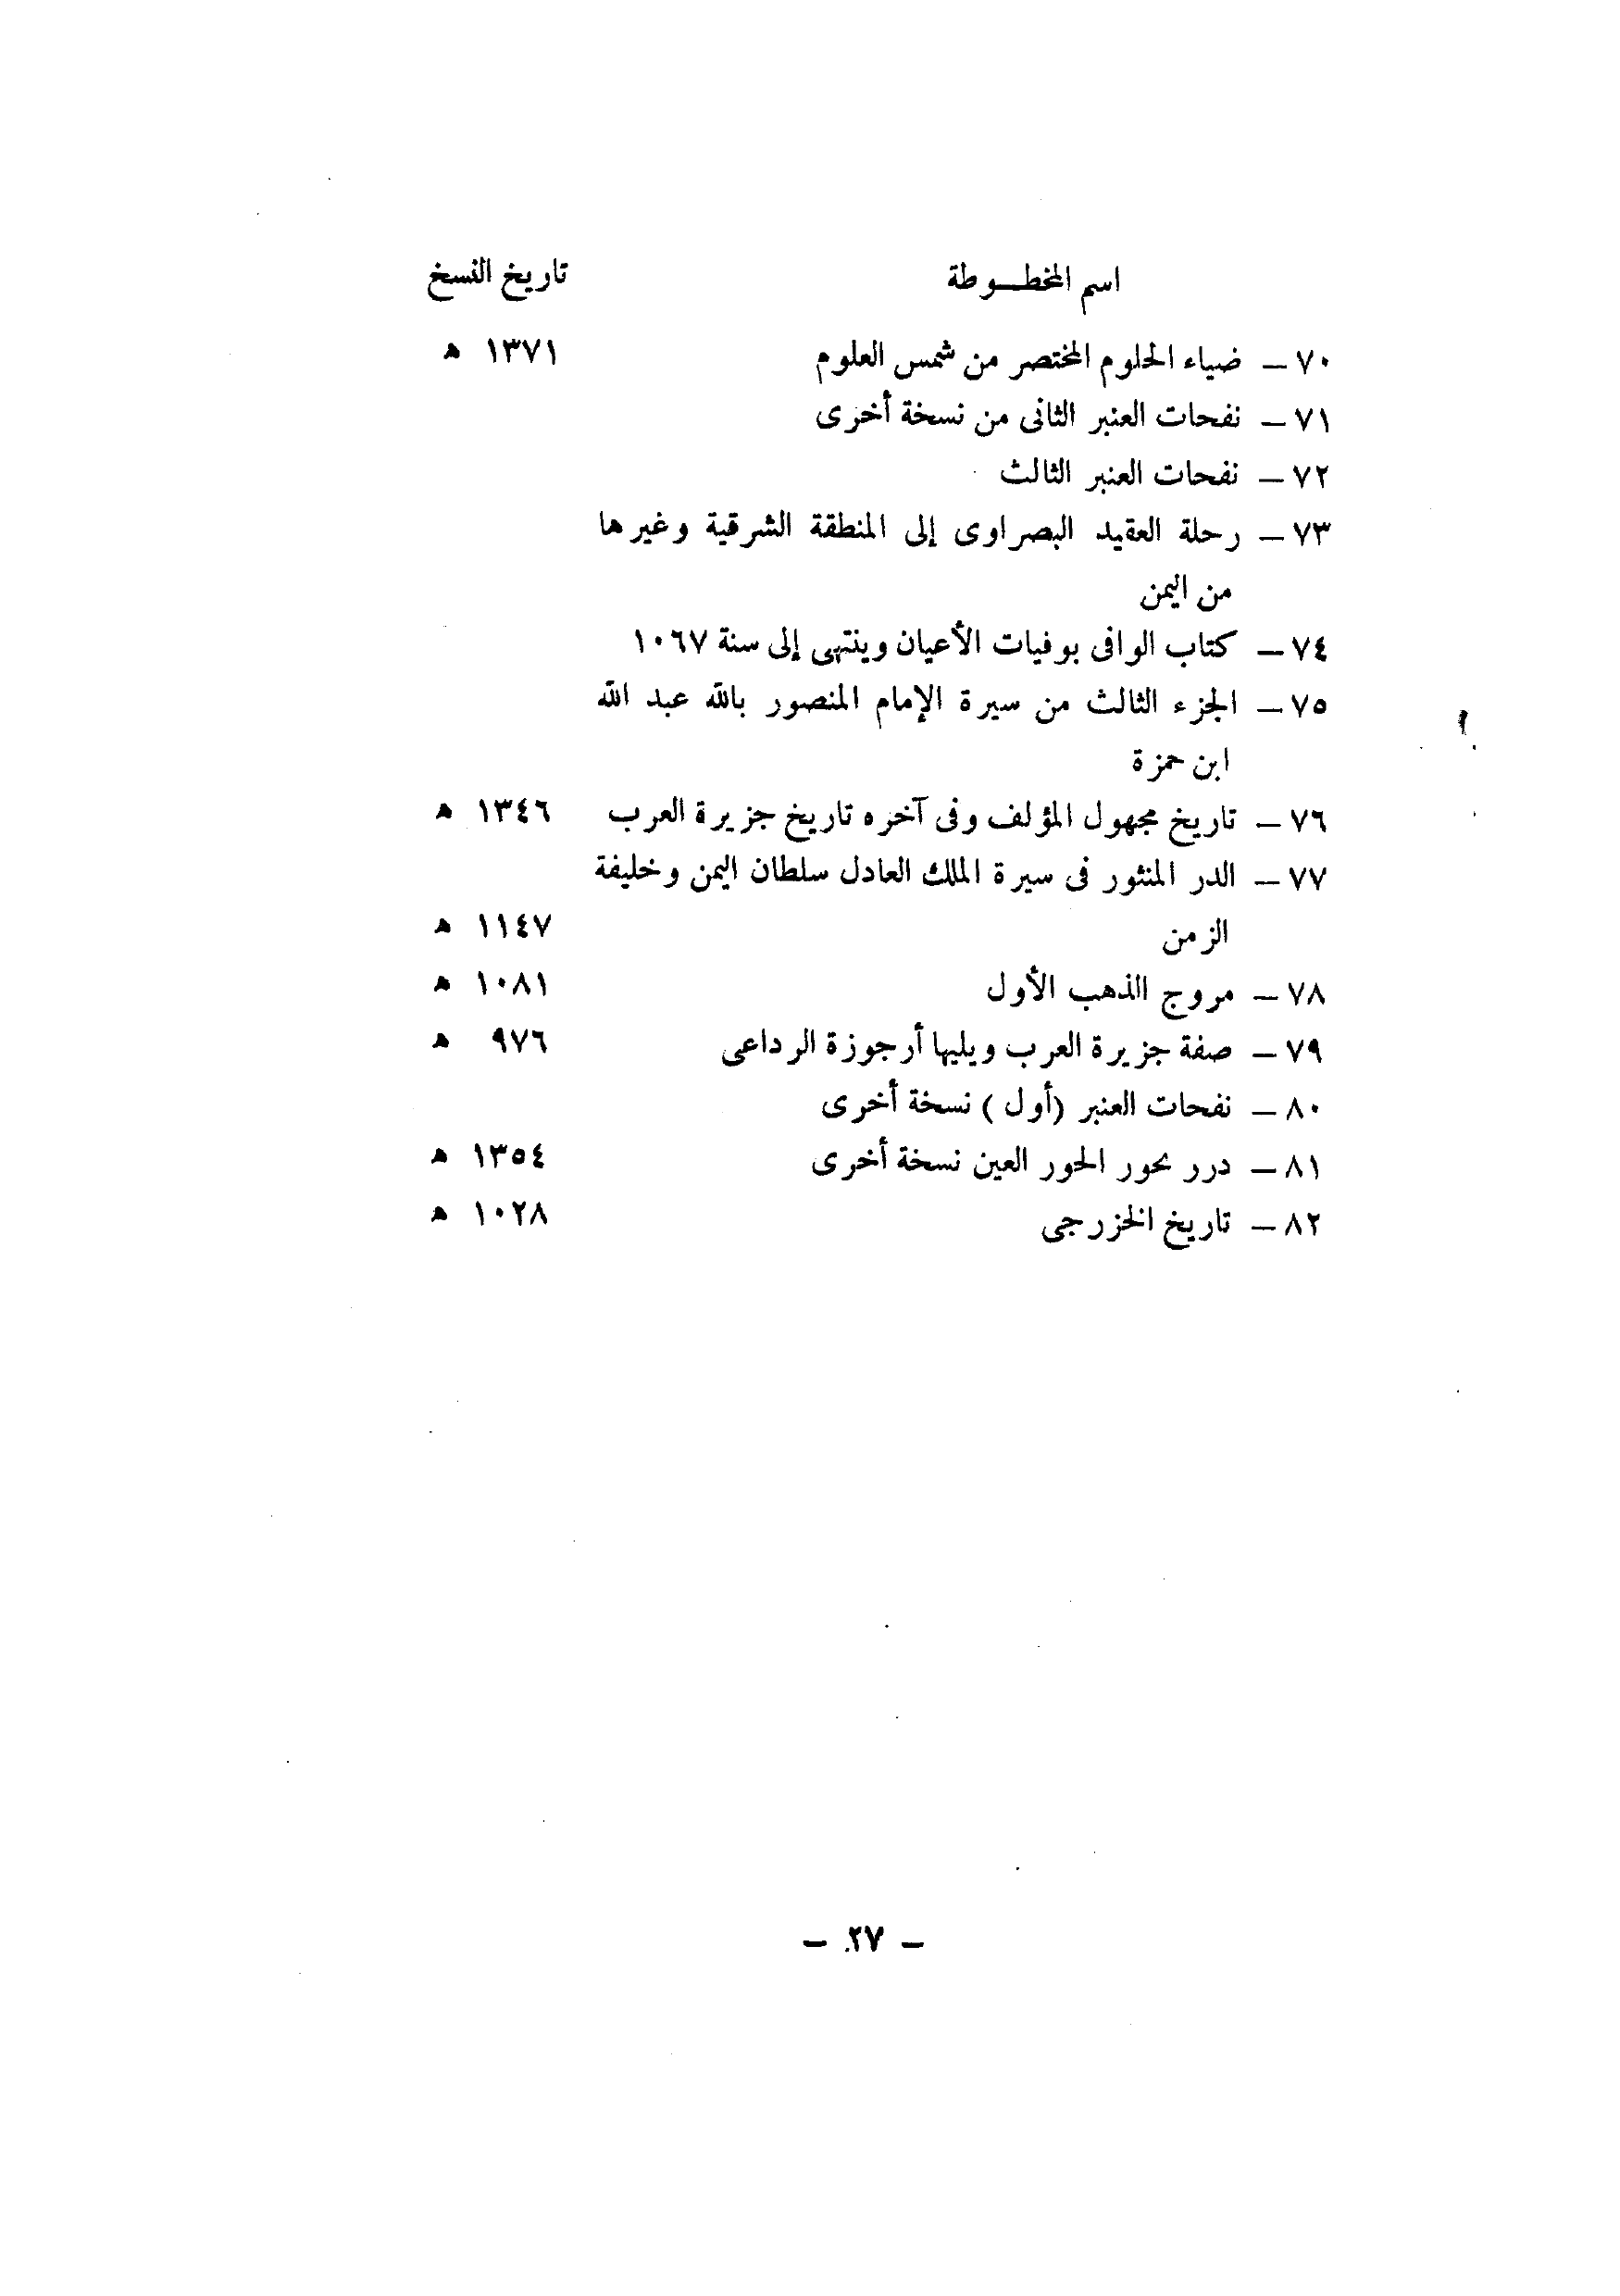 اسم المخطــوطة تاريخ النسخ
٧٠ – ضياء الحلوم المختصر من شمس العلوم ١٣٧١ ه
٧١ – نفحات العنبر الثانى من نسخة أخرى
٧٢ – نفحات العنبر الثالث
٧٣ – رحلة العقيد البصراوى إلى المنطقة الشرقية وغيرها
من اليمن
٧٤ – كتاب الوافى بوفيات الأعيان وينتهى إلى سنة ١٠٦٧
٧٥ – الجزء الثالث من سيرة الإمام المنصور بالله عبد الله
ابن حمزة
٧٦ – تاريخ مجهول المؤلف وفى آخره تاريخ جزيرة العرب ١٣٤٦ ه
٧٧ – الدر المنثور فى سيرة الملك العادل سلطان اليمن وخليفة
الزمن ١١٤٧ ه
٧٨ – مروج الذهب الأول ١٠٨١ ه
٧٩ – صفة جزيرة العرب ويليها أرجوزة الرداعى ٩٧٦ ه
٨٠ – نفحات العنبر (أول) نسخة أخرى
٨١ – درر نحور الحور العين نسخة أخرى ١٣٥٤ ه
٨٢ – تاريخ الخزرجى ١٠٢٨ ه
– ٢٧ –